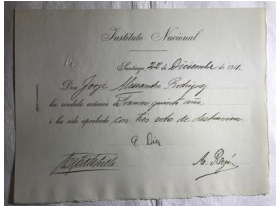 Instituto Nacional
Santiago, 22 de Diciembre de 191
Don Jorge Alessandri Rodriguez
ha rendido exámen de Frances quinto año
i ha sido aprobado con tres votos de distincion
A. Diez